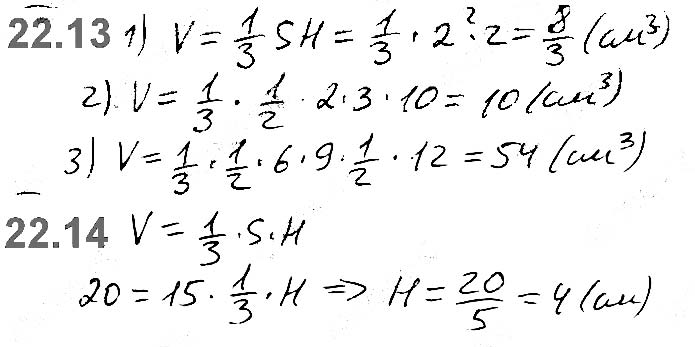 22.13 1) V = 1/3 SH = 1/3 · 2² · 2 = 8/3 (см³)
2) V = 1/3 · 1/2 · 2 · 3 · 10 = 10 (см³)
3) V = 1/3 · 1/2 · 6 · 9 · 1/2 · 12 = 54 (см³)
22.14 V = 1/3 · S · H
20 = 15 · 1/3 · H ⇒ H = 20/5 = 4 (см)